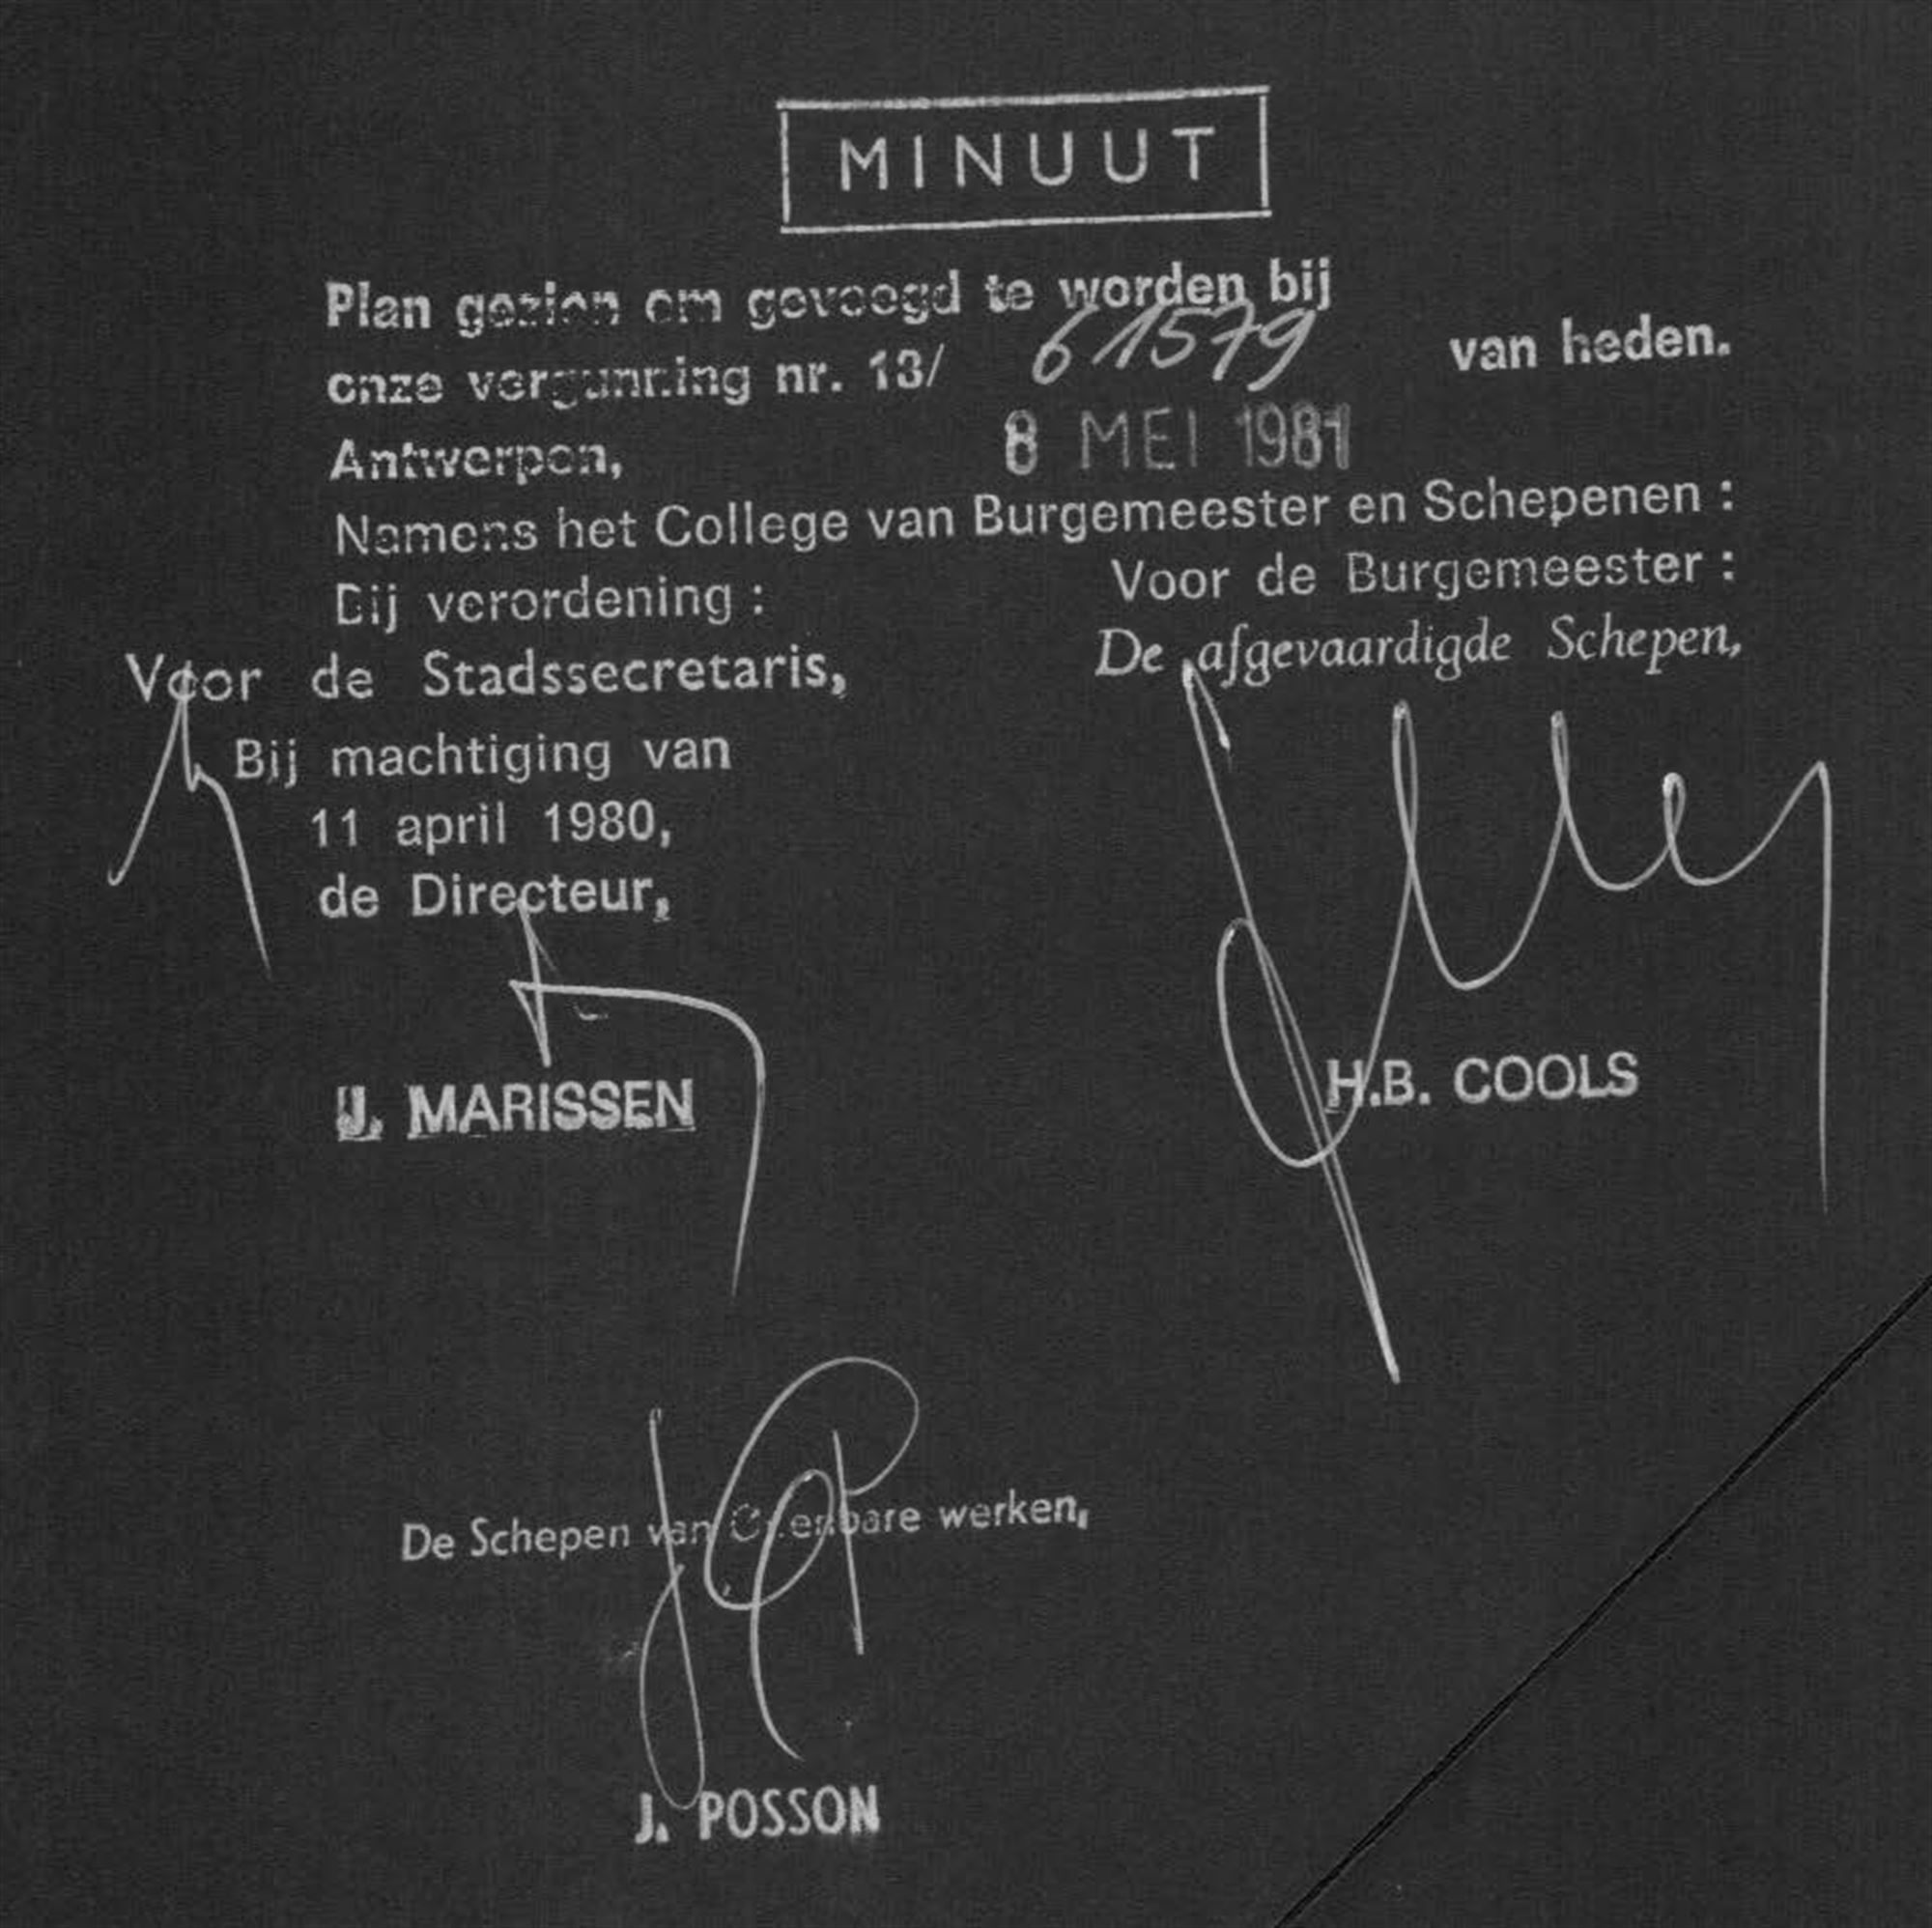 MINUUT
Plan gezien om gevoegd te worden bij
onze vergunning nr. 18/ 61579 van heden.
Antwerpen, 8 MEI 1981
Namens het College van Burgemeester en Schepenen :
Bij verordening :
Voor de Burgemeester :
Voor de Stadssecretaris,
De afgevaardigde Schepen,
Bij machtiging van
11 april 1980,
de Directeur,
J. MARISSEN
H.B. COOLS
De Schepen van Openbare werken,
J. POSSON